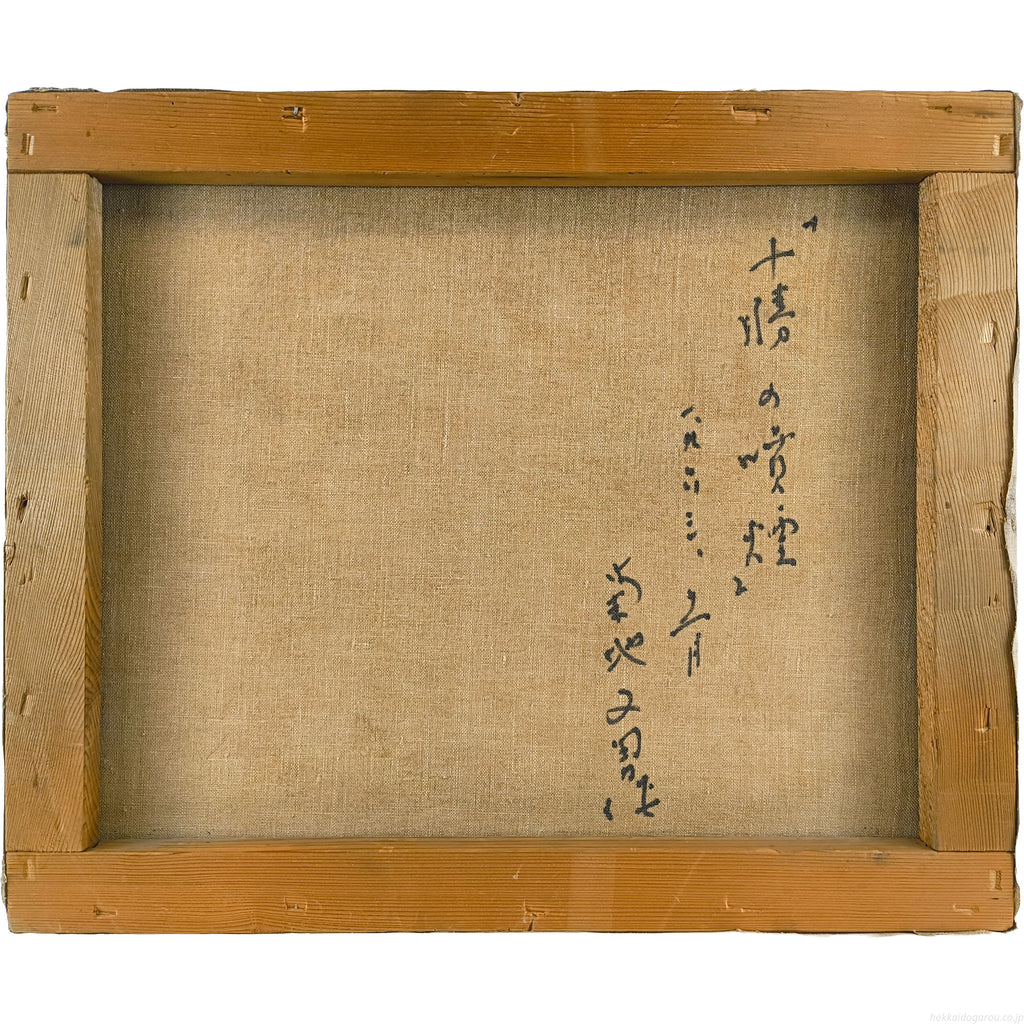 「十勝の噴煙」
一九六三、月
菊地又男作
hokkaidogarou.co.jp